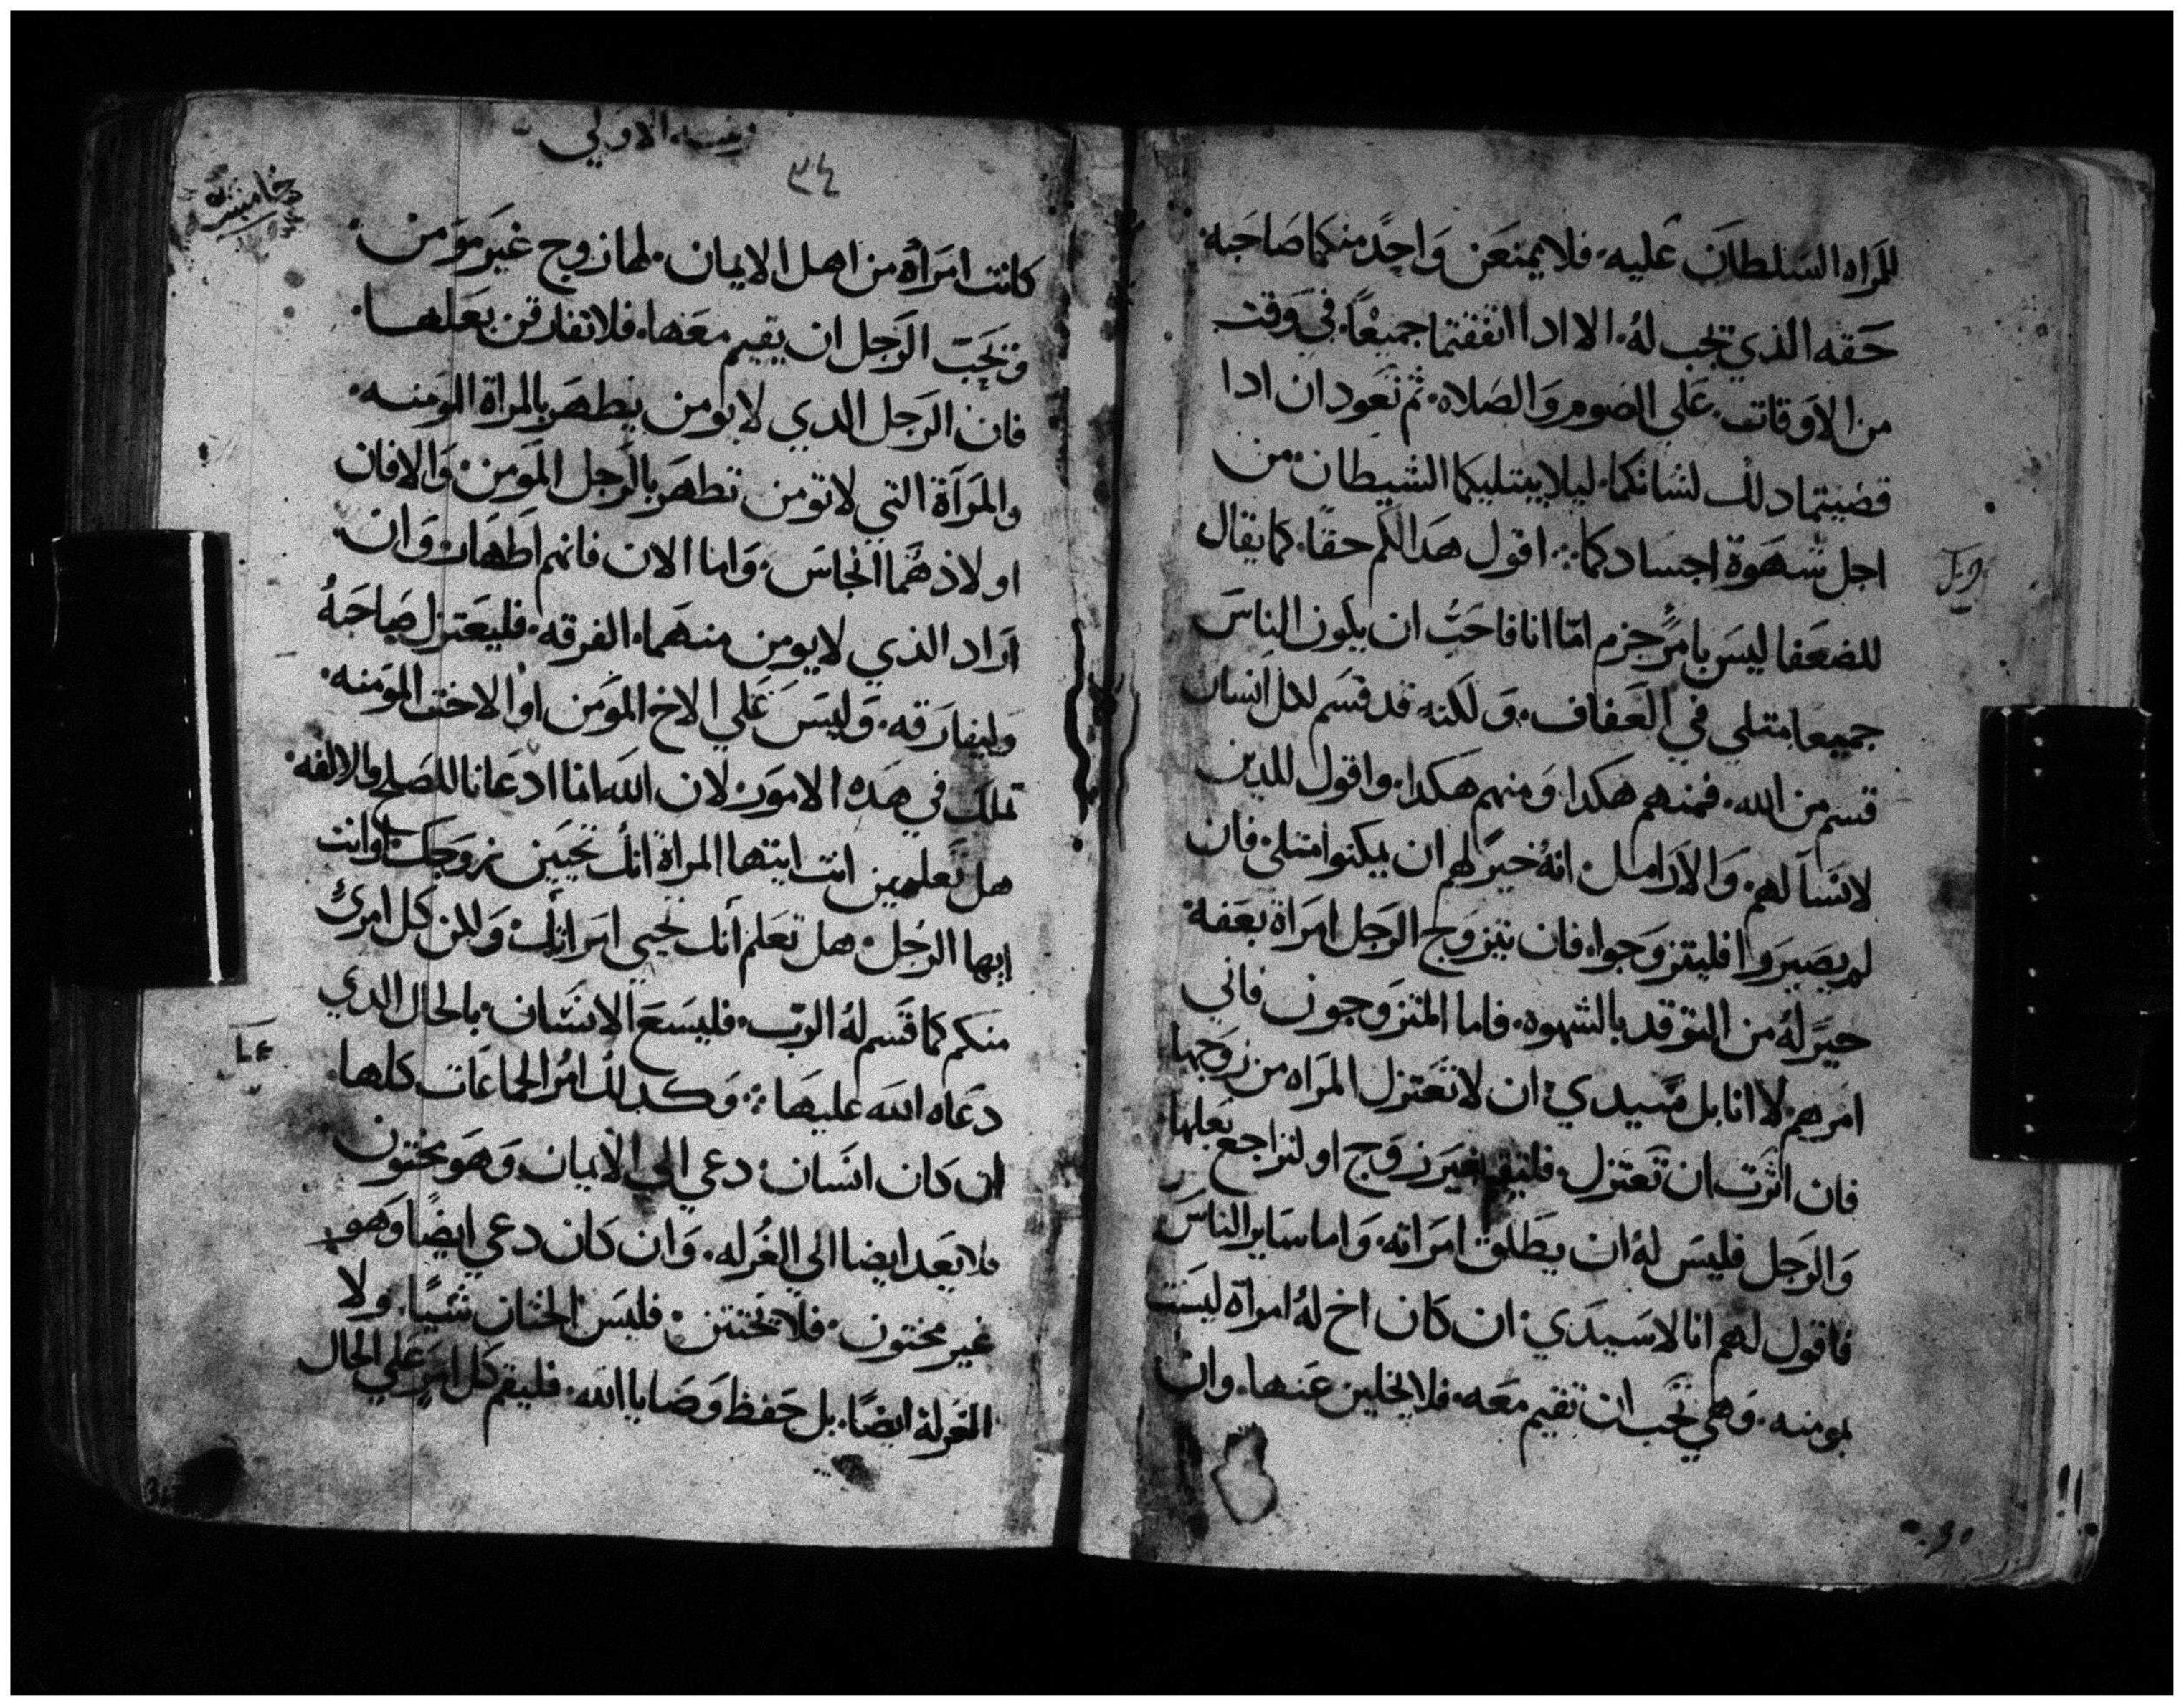 للمراه السلطان عليه. فلا يمنعن واحد منكما صاحبه.
حقه الذي يجب له. الا ادا اتفقتما جميعًا. في وقت
من الاوقات. على الصوم والصلاه. ثم نعود ان ادا
قضيتما دلك لشانكما. ليلا يبتليكما الشيطان من
اجل شهوة اجسادكما ∴ اقول هدا لكم حقا. كما يقال
للضعفا ليس بامرٍ جزم امّا انا فاحبّ ان يكون الناس
جميعا متلي في العفاف. ولكنه قد قسم لكل انسان
قسم من الله. فمنهم هكدا ومنهم هكدا. واقول للدين
لا نسا لهم. والارامل. انه خيرٌ لهم ان يمكتوا متلي. فان
لم يصبروا فليتزوجوا. فان تتزوج الرجل امراة بعفة
خيرٌ له من التوقد بالشهوه. فاما المتزوجون فاني
امرهم لا انا بل سيدي. ان لا تعتزل المراه من زوجها
فان اثرت ان تعتزل. فلتقم بغير زوج او لتراجع بعلها
والرجل فليس له ان يطلق امراته. واما ساير الناس
فاقول لهم انا لا سيدي. ان كان اخ له امراة ليست
بمومنه. وهي تحب ان تقيم معه. فلا يخلين عنها. وان
الاولي
٣٤
خامسة
كانت امراة من اهل الايمان. لها زوج غير مومن.
ويحبّ الرجل ان يقيم معها. فلا تفارقن بعلها.
فان الرجل الدي لا يومن يطهر بالمراة المومنه.
والمراة التي لا تومن تطهر بالرجل المومن. والا فان
اولادهما انجاس. واما الان فانهم اطهار. وان
اراد الذي لا يومن منهما. الفرقه. فليعتزل صاحبهُ
وليفارقه. وليس على الاخ المومن او الاخت المومنه.
تملك في هده الامور. لان الله انما ادعانا للصلح والالفه.
هل تعلمين انت ايتها المراة انك تحيين زوجك. او انت
ايها الرجل. هل تعلم انك تحيي امراتك. ولكن كل امرئٍ
منكم كما قسم له الرب. فليسع الانسان. بالحال الدي
دعاه الله عليها ∴ وكدلك امُر الجماعات كلها.
ان كان انسان. دعي الى الايمان. وهو مختون
فلا يعد ايضا الي الغُرله. وان كان دعي ايضًا وهو
غير مختون. فلا يختتن. فليس الختان شيًا. ولا
الغرلة ايضًا. بل حفظ وصايا الله. فليقم كل امرٍ على الحال